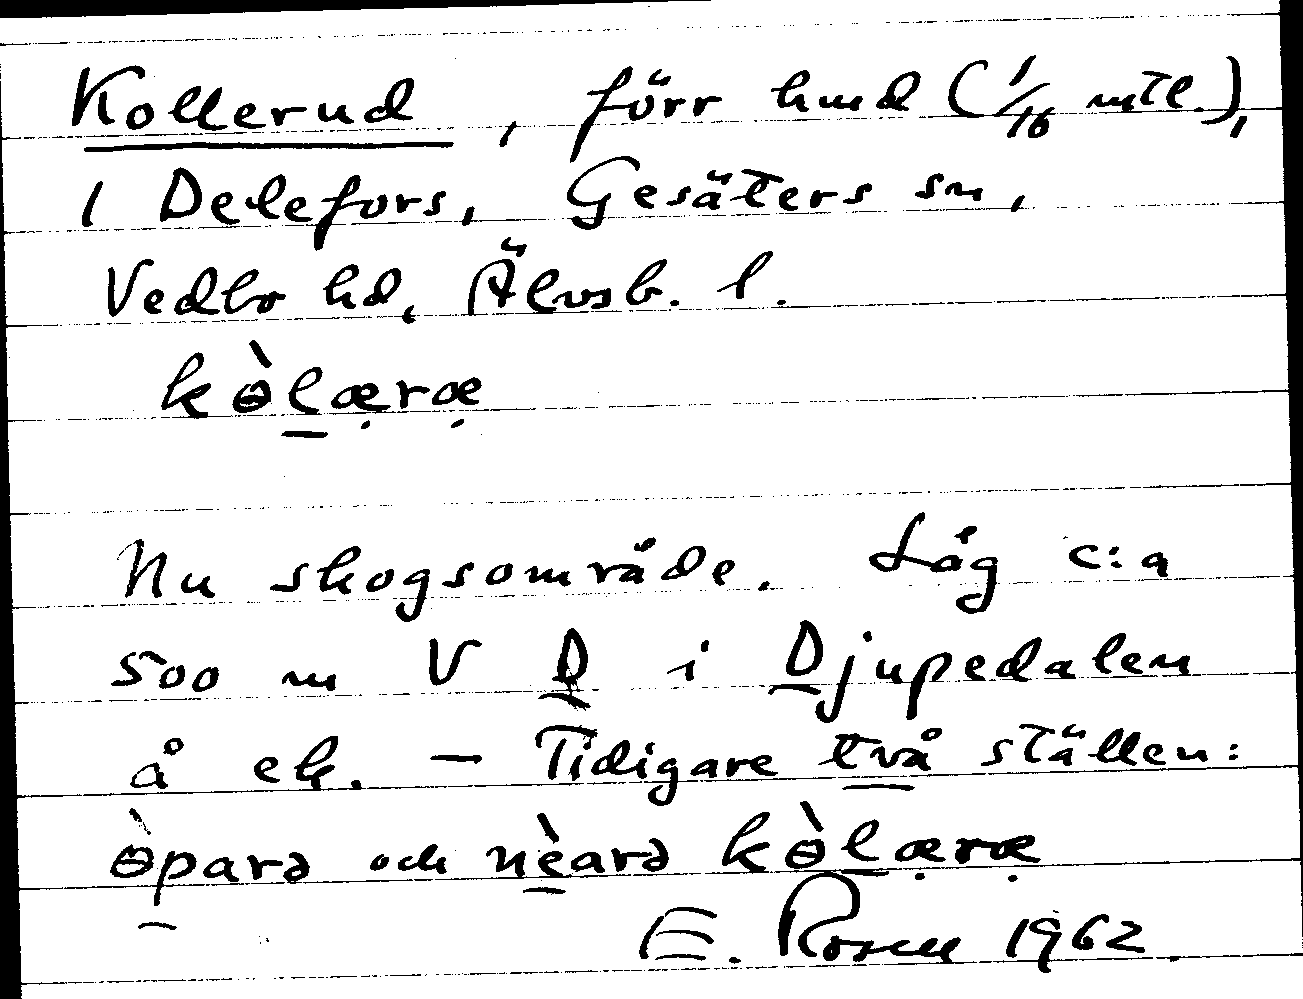 Kollerud, förr hmd (1/16 mtl.),
i Delefors, Gesäters sn,
Vedbo hd, Älvsb. l.
kɵ̀l̠æ̣ræ̣
Nu skogsområde. Låg c:a
500 m V D i Djupedalen
å ek. – Tidigare två ställen:
ɵ̀p̠arə och nè̠arə kɵ̀l̠æ̣ræ̣
E. Rosell 1962.